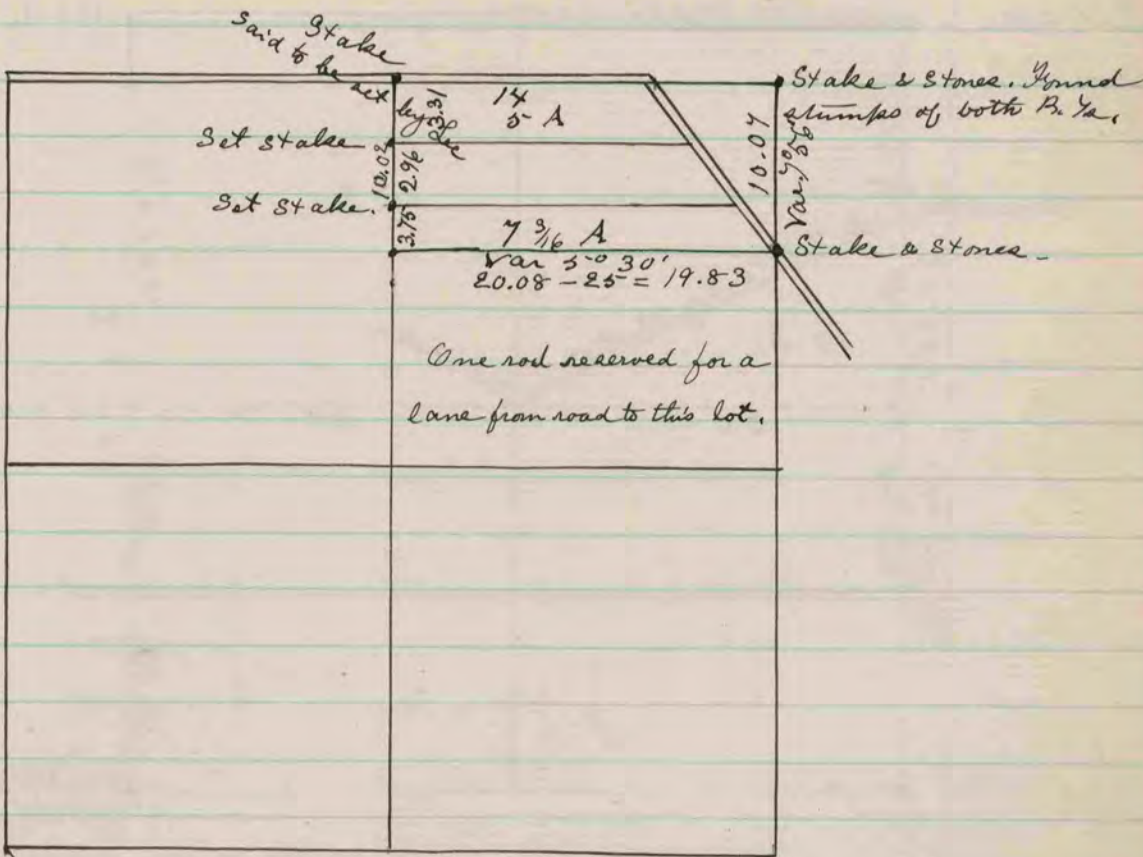 Stake
said to be set
by Lee
Stake & Stones. Found
stumps of both B. Ts.
14
5 A
3.31
Set stake
10.02
2.96
10.07
Var.
Set stake.
3.75
7 3/16 A
Stake & Stones.
Var 5° 30'
20.08 - 25 = 19.83
One rod reserved for a
lane from road to this lot.